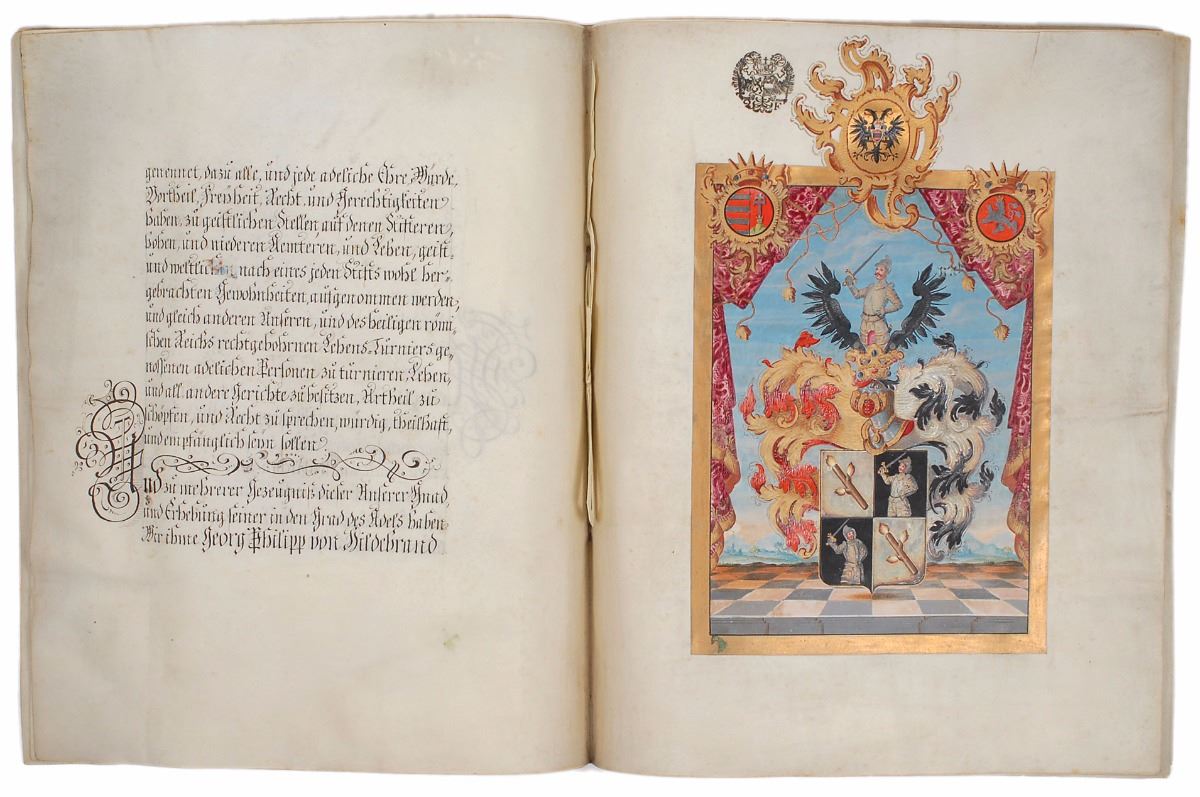 genennet, dazu alle, und jede adeliche Ehre, Würde,
Vortheil, Freÿheit, Recht, und Gerechtigkeiten
haben, zu geistlichen Stellen auf denen Stifteren,
hohen, und niederen Aemteren, und Lehen, geist-
und weltlichen, nach eines jeden Stifts wohl her-
gebrachten Gewohnheiten, aufgenommen werden,
und gleich anderen Unseren, und des heiligen römi-
schen Reichs rechtgebohrnen Lehens-Turniers-ge-
nossenen adelichen Personen zu turnieren, Lehen,
und all andere Gerichte zu besitzen, Urtheil zu
schöpfen, und Recht zu sprechen, würdig, theilhaft,
und empfänglich seÿn sollen
Und zu mehrerer Gezeugniß dieser Unserer Gnad,
und Erhebung seiner in den Grad des Adels haben
Wir ihme Georg Philipp von Hildebrand